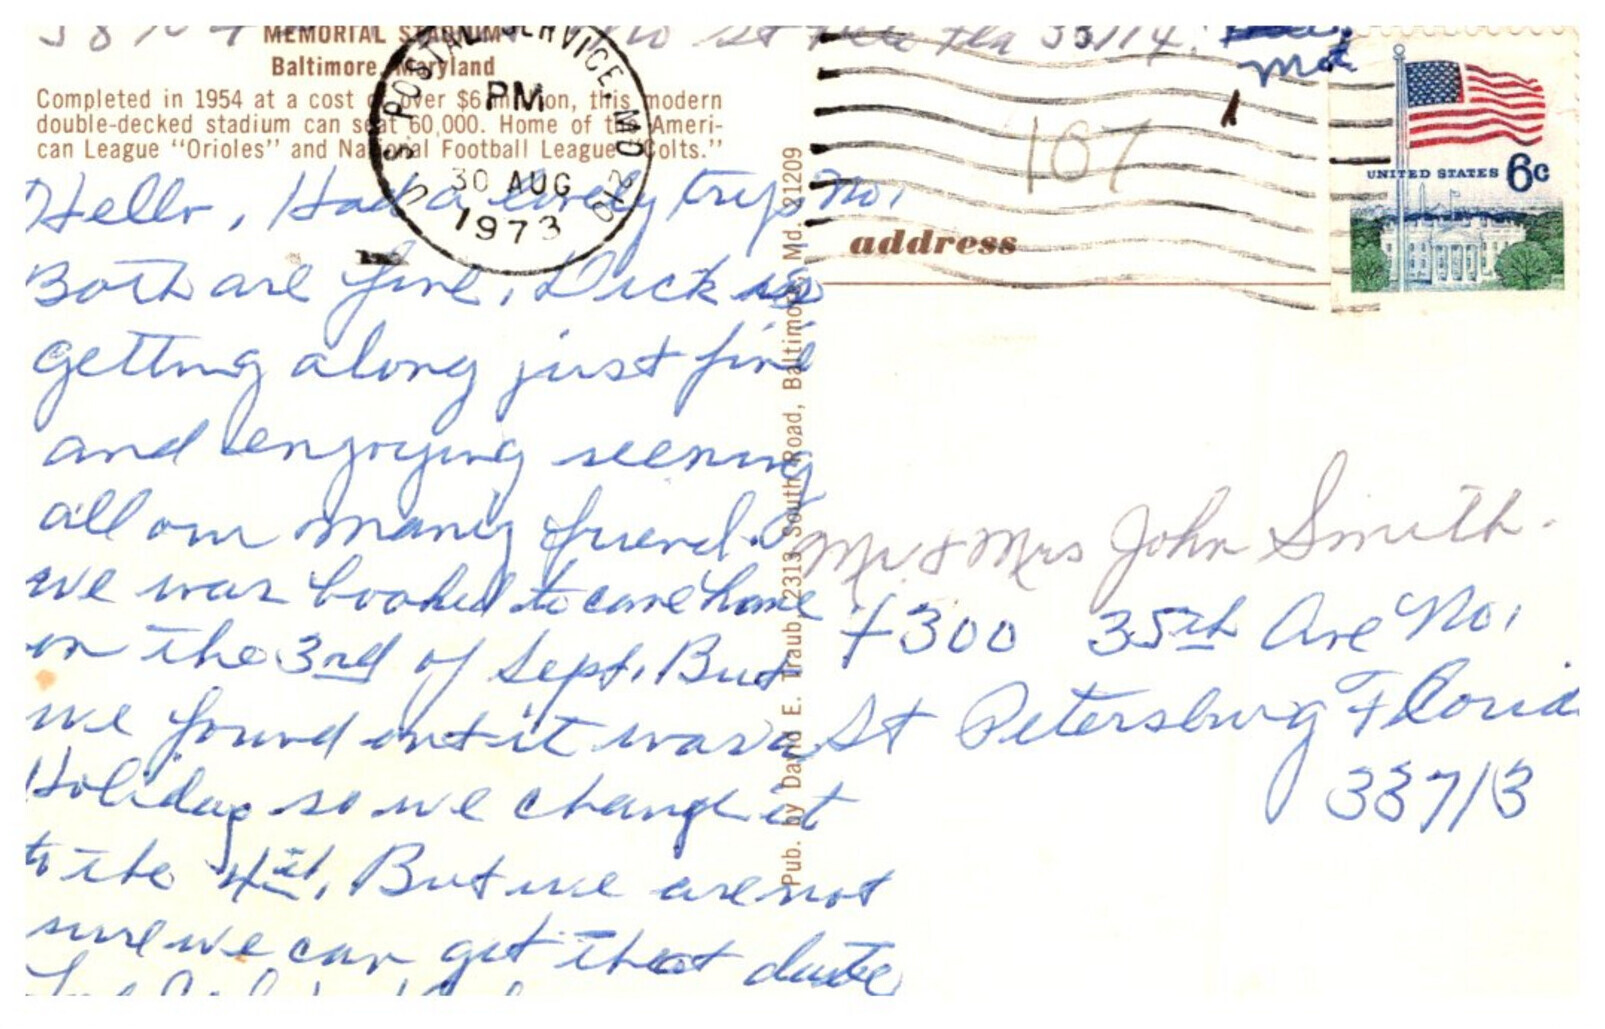 MEMORIAL STADIUM
Baltimore, Maryland
Completed in 1954 at a cost of over $6 million, this modern
double-decked stadium can seat 60,000. Home of the Ameri-
can League "Orioles" and National Football League "Colts."
U.S. POSTAL SERVICE, MD 212
PM
30 AUG
1973
Hello, Had a lovely trip No.
Both are fine, Dick is
getting along just fine
and engoying seening
all our many friend.
we was booked to come home
on the 3rd of Sept. But
we found out it was a
Holiday so we change it
to the 4th. But we are not
sure we can get that date
Pub. by David E. Traub, 2313 South Road, Baltimore, Md. 21209
St Pete Fla 33714
167
address
UNITED STATES 6c
Mr & Mrs John Smith.
4300 35th Ave No.
St Petersburg Florida
33713